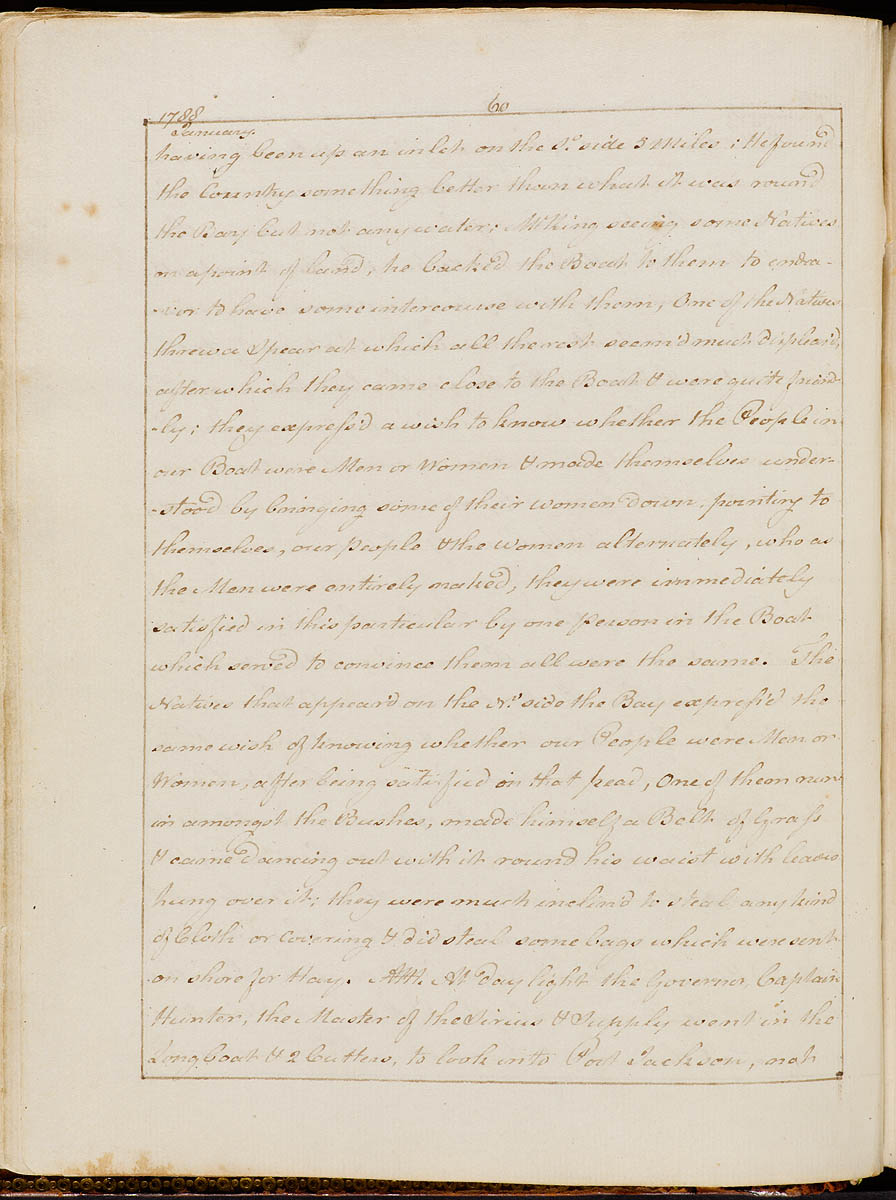 60
1788
January.
having been up an inlet on the So. side 5 Miles; He found
the Country something better than what it was round
the Bay but not any water; Mr. King seeing some Natives
on a point of land, he backed the Boat to them to endea-
-vor to have some intercourse with them, One of the Natives
threw a Spear at which all the rest seem'd much displeas'd,
after which they came close to the Boat & were quite friend-
-ly; they express'd a wish to know whether the People in
our Boat were Men or Women & made themselves under-
-stood by bringing some of their women down, pointing to
themselves, our people & the women alternately, who as
the Men were entirely naked, they were immediately
satisfied in this particular by one person in the Boat
which served to convince them all were the same. The
Natives that appear'd on the No. side the Bay express'd the
same wish of knowing whether our People were Men or
Women, after being satisfied on that head, One of them run
in amongst the Bushes, made himself a Belt of Grass
& came dancing out with it round his waist with leaves
hung over it; they were much inclin'd to steal any kind
of Cloth or covering & did steal some bags which were sent
on shore for Hay. At day light the Governor, Captain
Hunter, the Master of the Sirius & Supply went in the
Long boat & 2 Cutters, to look into Port Jackson, not